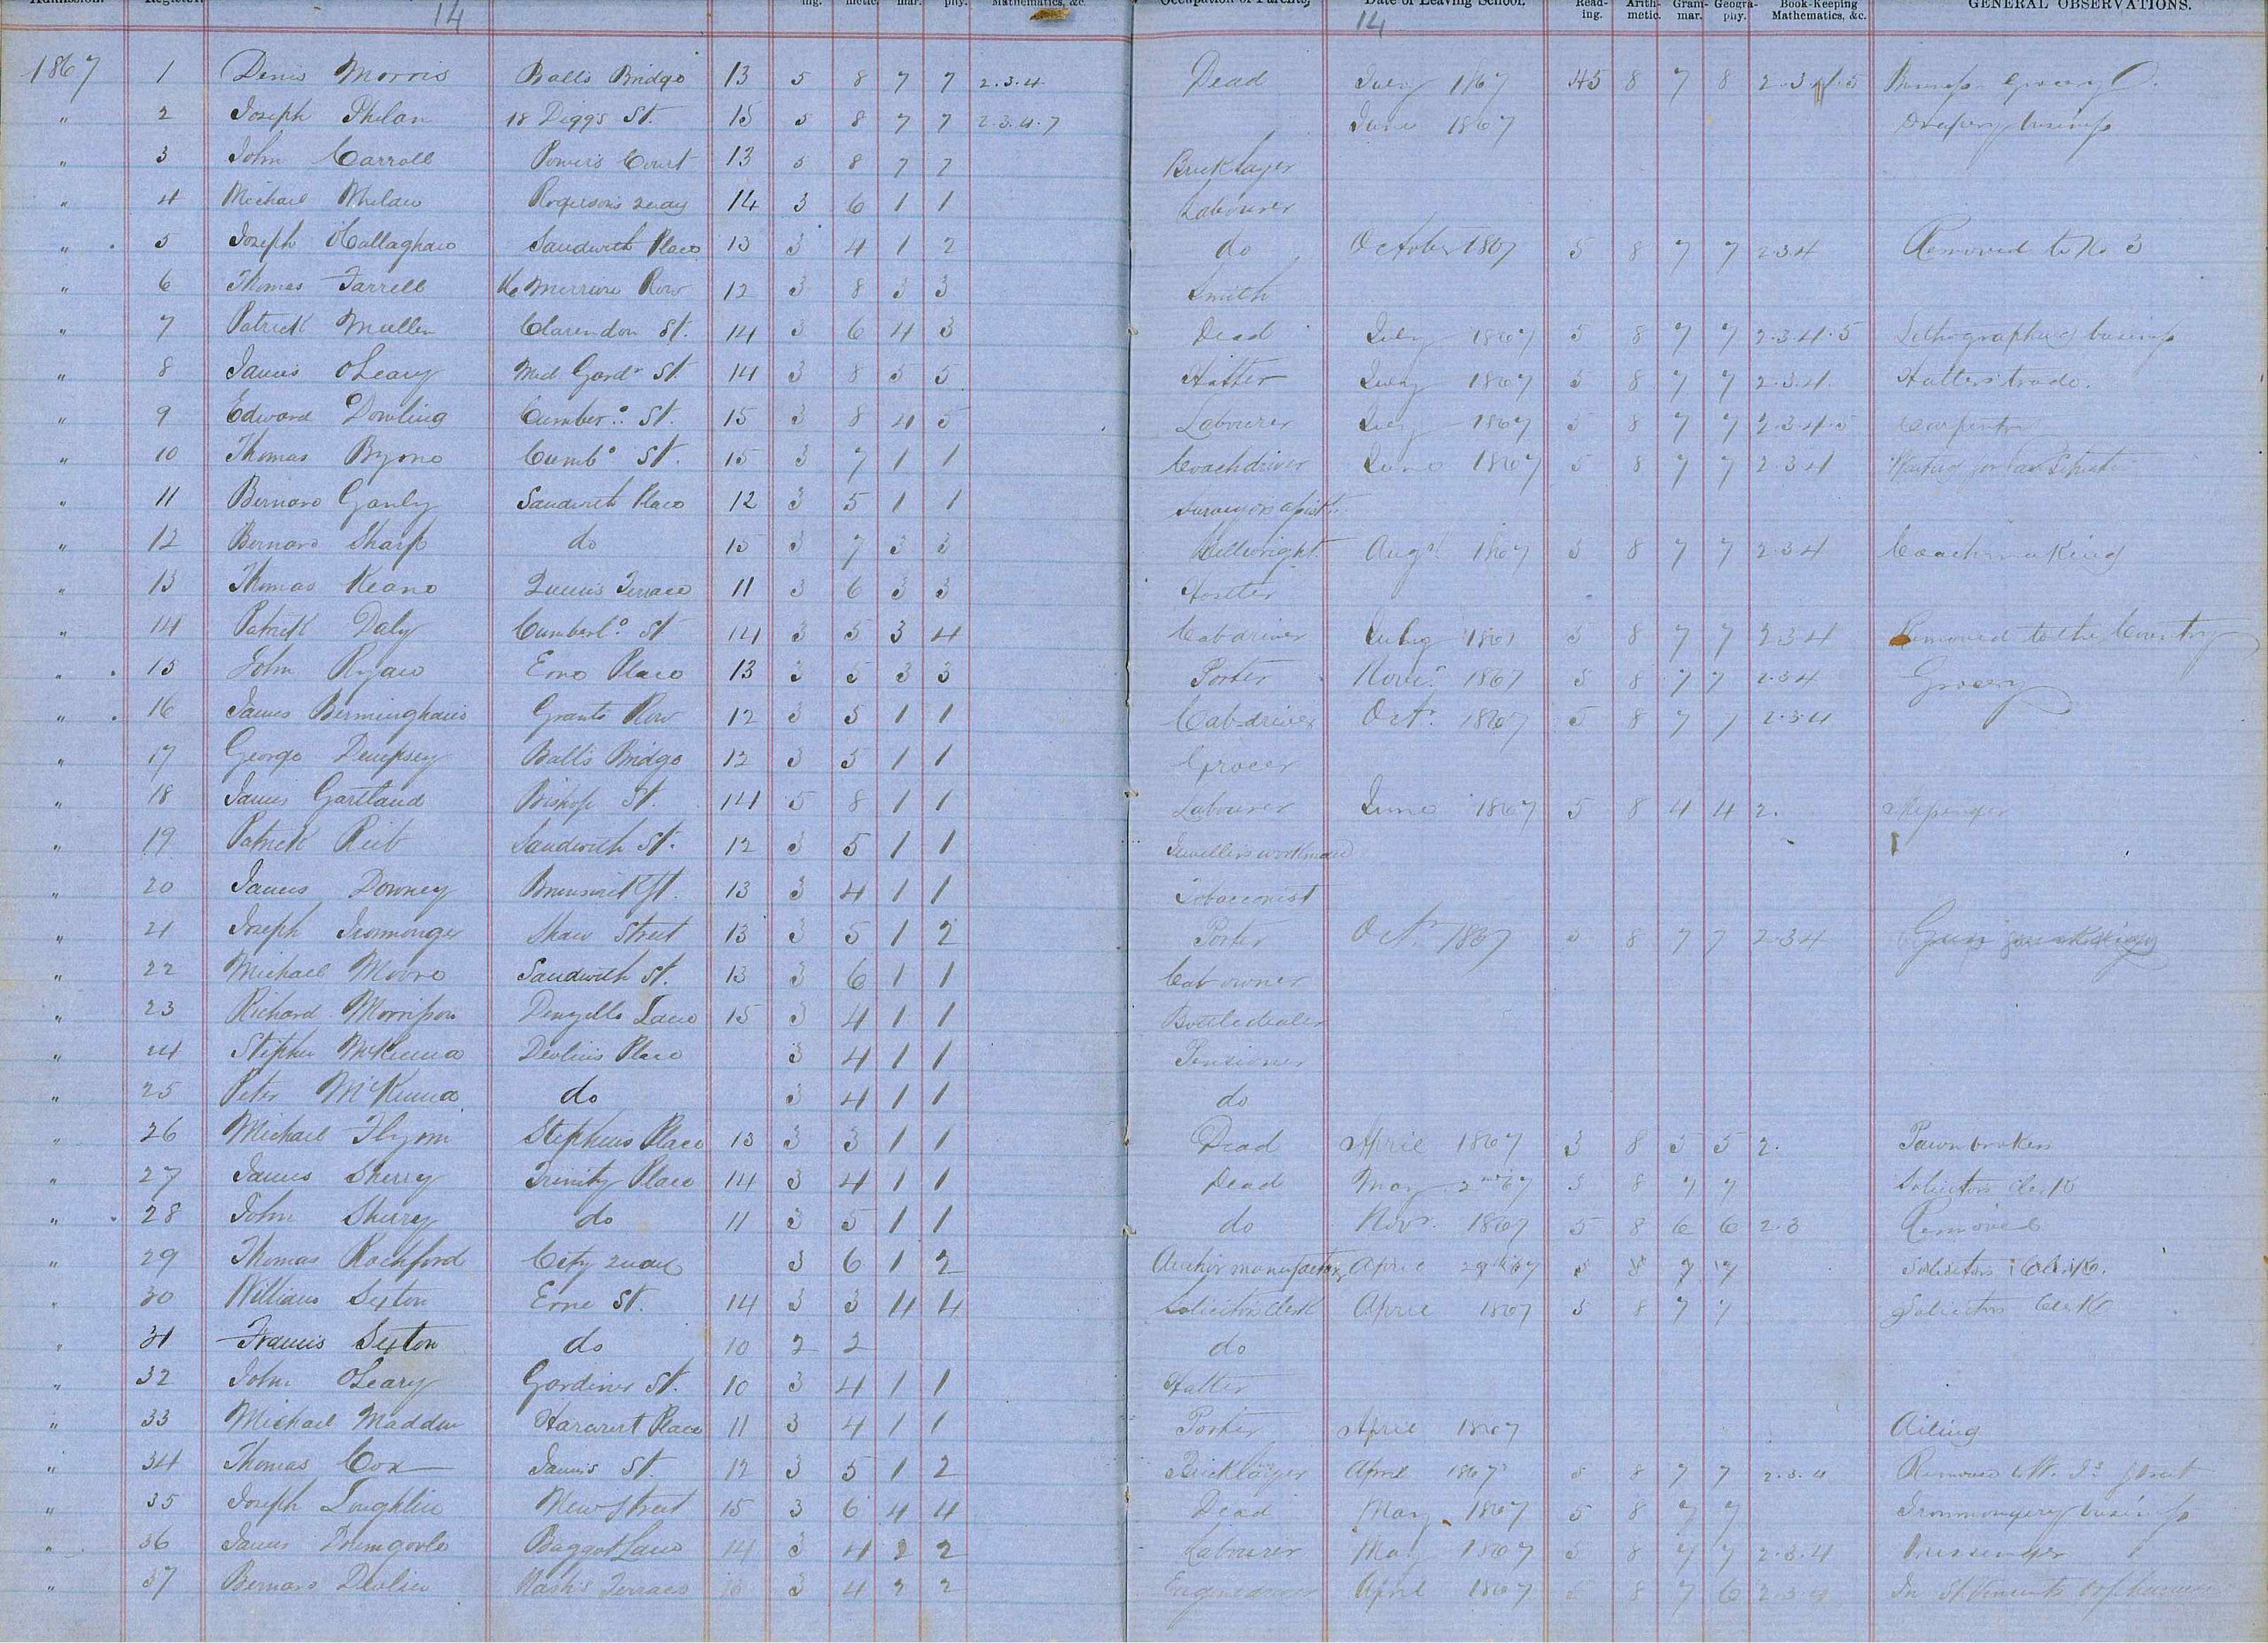 Admission. Register. ing. metic. mar. phy. Mathematics, &c. Occupation of Parents, Date of Leaving School. Read-ing. Arith-metic. Gram-mar. Geogra-phy. Book-Keeping Mathematics, &c. GENERAL OBSERVATIONS.
14 14
1867 1 Denis Morris Balls Bridge 13 5 8 7 7 2.3.4 Dead July 1867 45 8 7 8 2.3.4.5 Business Grocery
" 2 Joseph Phelan 18 Diggs St. 15 5 8 7 7 2.3.4.7 June 1867 Drapery business
" 3 John Carroll Powers Court 13 5 8 7 7 Bricklayer
" 4 Michael Whelan Rogersons Quay 14 3 6 1 1 Labourer
" 5 Joseph O'Callaghan Sandwith Place 13 3 4 1 2 do October 1867 5 8 7 7 2.3.4 Removed to No 3
" 6 Thomas Farrell 16 Merrion Row 12 3 8 3 3 Smith
" 7 Patrick Mullen Clarendon St. 14 3 6 4 3 Dead July 1867 5 8 7 7 2.3.4.5 Lithographing business
" 8 James O'Leary Mid Gardr St. 14 3 8 5 5 Hatter July 1867 5 8 7 7 2.3.4. Hatters trade.
" 9 Edward Dowling Cumbero. St. 15 3 8 4 5 Labourer July 1867 5 8 7 7 2.3.4.5 Carpenter
" 10 Thomas Byrne Cumbo St. 15 3 7 1 1 Coachdriver June 1867 5 8 7 7 2.3.4 Waiting for a
" 11 Bernard Ganly Sandwith Place 12 3 5 1 1 Surveyors assist.
" 12 Bernard Sharp do 15 3 7 3 3 Millwright Augt 1867 5 8 7 7 2.3.4 Coachmaking
" 13 Thomas Keane Queens Terrace 11 3 6 3 3 Hostler
" 14 Patrick Daly Cumberlo. St 14 3 5 3 4 Cabdriver July 1867 5 8 7 7 2.3.4 Removed to the Country
" 15 John Ryan Erne Place 13 3 5 3 3 Porter Novr. 1867 5 8 7 7 2.3.4 Grocery
" 16 James Bermingham Grants Row 12 3 5 1 1 Cab-driver Octr. 1867 5 8 7 7 2.3.4
" 17 George Dempsey Balls Bridge 12 3 5 1 1 Grocer
" 18 James Gartland Bishop St. 14 5 8 1 1 Labourer June 1867 5 8 4 4 2. Messenger
" 19 Patrick Sandwith St. 12 3 5 1 1 Jewellers workman
" 20 James Downey Brunswick St. 13 3 4 1 1 Tobacconist
" 21 Joseph Ironmonger Shaw Street 13 3 5 1 2 Porter Octr 1867 5 8 7 7 2.3.4
" 22 Michael Moore Sandwith St. 13 3 6 1 1 Cab owner
" 23 Richard Morrisson Denzelle Lane 15 3 4 1 1 Bottledealer
" 24 Stephen McKenna Devlins Place 3 4 1 1 Pensioner
" 25 Peter McKenna do 3 4 1 1 do
" 26 Michael Flynn Stephens Place 13 3 3 1 1 Dead April 1867 3 8 5 5 2. Pawnbroker
" 27 James Sherry Trinity Place 14 3 4 1 1 Dead May 2nd 67 5 8 7 7 Solicitors Clerk
" 28 John Sherry do 11 3 5 1 1 do Novr. 1867 5 8 6 6 2.3 Removed
" 29 Thomas Rochford City Quay 3 6 1 2 Anchor manufactory April 29th 67 5 8 7 7 Solicitors Clerk.
" 30 William Sexton Erne St. 14 3 3 4 4 Solicitors Clerk April 1867 5 8 7 7 Solicitors Clerk
" 31 Francis Sexton do 10 2 2 do
" 32 John O'Leary Gardiner St. 10 3 4 1 1 Hatter
" 33 Michael Madden Harcourt Place 11 3 4 1 1 Porter April 1867 Ailing
" 34 Thomas Cox James St. 12 3 5 1 2 Bricklayer April 1867 5 8 7 7 2.3.4 Removed to Street
" 35 Joseph Loughlin New Street 15 3 6 4 4 Dead May 1867 5 8 7 7 Ironmongery business
" 36 James Drumgoole Baggot Lane 14 3 4 2 2 Labourer May 1867 5 8 7 7 2.3.4 Messenger
" 37 Bernard Devlin Nash's Terrace 13 3 4 2 2 Enginedriver April 1867 5 8 7 6 2.3.4 In St Vincents orphanage